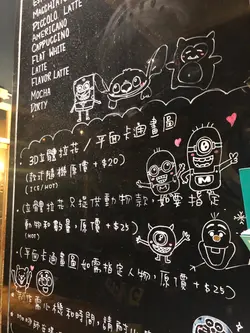 MACCHIATO
PICCOLO LATTE
AMERICANO
CAPPUCCINO
FLAT WHITE
LATTE
FLAVOR LATTE
MOCHA
DIRTY
·3D立體拉花 / 平面卡通畫圖
(款式隨機 原價 + $20)
(ICE/HOT)
·(立體拉花只提供動物款, 如需指定
動物和動畫, 原價 + $25)
(HOT)
·(平面卡通畫圖如需指定人物, 原價 + $25)
製作需小機和時間, 請